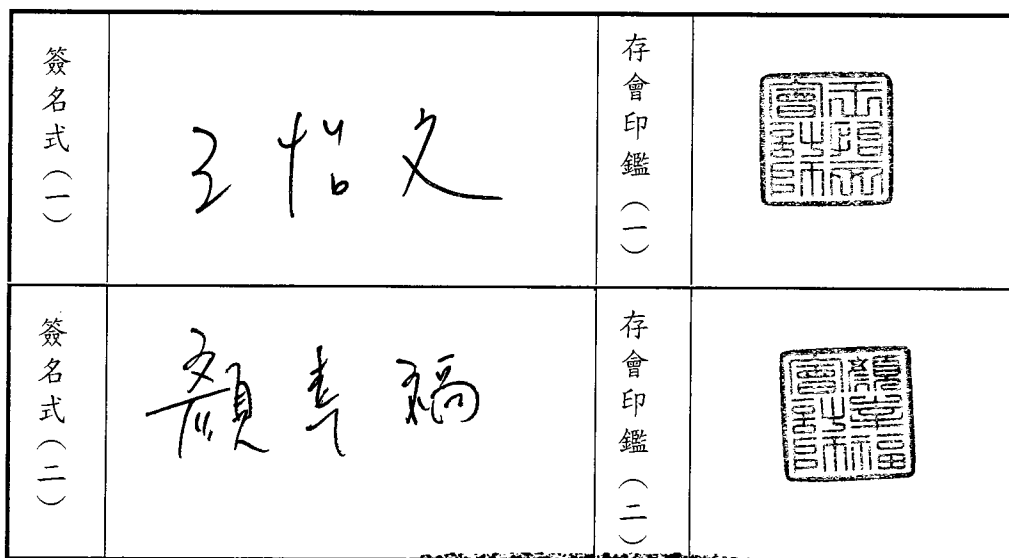 簽名式(一)
王怡文
存會印鑑(一)
王怡文會計師
簽名式(二)
顏幸福
存會印鑑(二)
顏幸福會計師